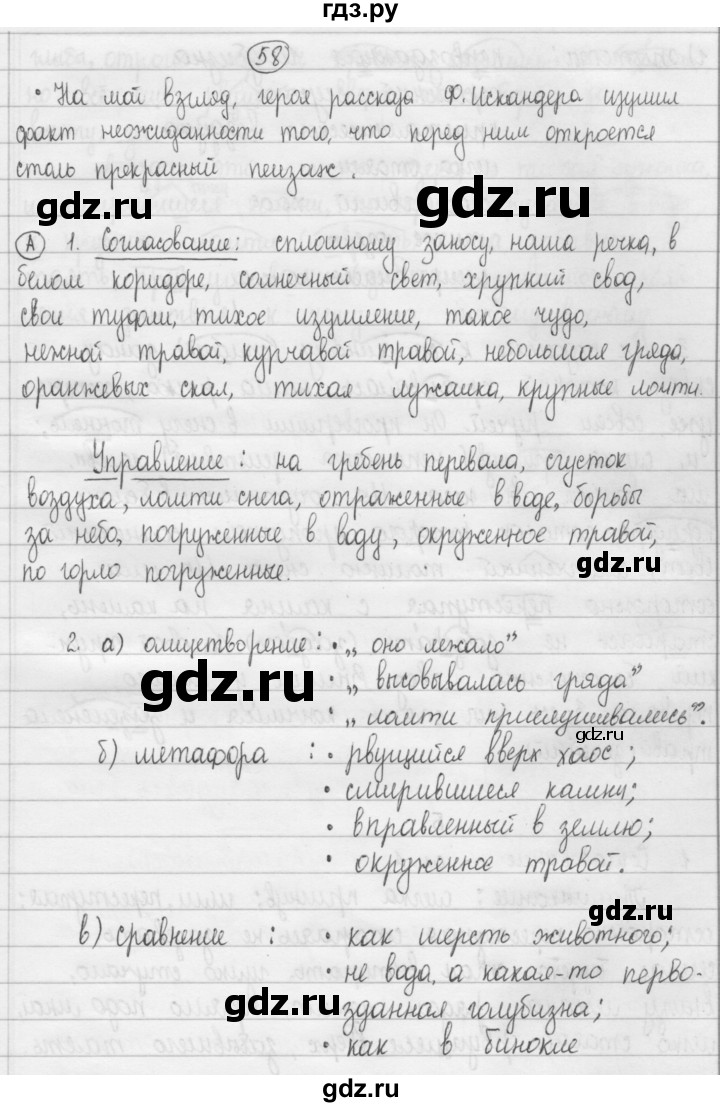 гдз.ру
58
• На мой взгляд, героя рассказа Ф. Искандера изумил
факт неожиданности того, что перед ним откроется
столь прекрасный пейзаж.
gdz.ru gdz.ru
А 1. Согласование: сплошному заносу, наша речка, в
белом коридоре, солнечный свет, хрупкий свод,
свои туфли, тихое изумление, такое чудо,
нежной травой, курчавой травой, небольшая гряда,
оранжевых скал, тихая лужайка, крупные ломти.
gdz.ru
Управление: на гребень перевала, сгусток
воздуха, ломти снега, отраженные в воде, борьбы
за небо, погруженные в воду, окруженное травой,
по горло погруженные.
gdz.ru
2. а) олицетворение: • „оно лежало”
gdz.ru
• „высовывалась гряда”
• „ломти прислушивались”.
gdz.ru
б) метафора : • рвущийся вверх хаос;
• смирившиеся камни;
• вправленный в землю;
• окруженное травой.
gdz.ru
в) сравнение : • как шерсть животного;
• не вода, а какая-то перво-
зданная голубизна;
gdz.ru
• как в бинокле
gdz.ru